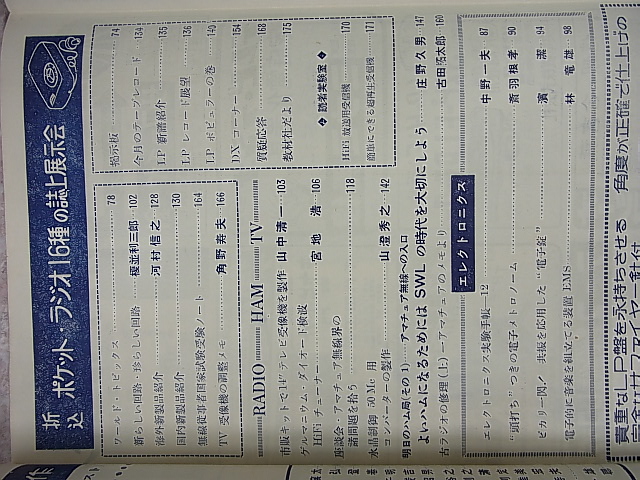 折込 ポケット・ラジオ16種の誌上展示会
ワールド・トピックス 78
新らしい回路・珍らしい回路 102
海外新製品紹介 河村信之 128
国内新製品紹介 130
無線従事者国家試験受験ノート 164
TV 受像機の調整メモ 角野寿夫 166
掲示板 74
今月のテープレコード 134
LP 新譜紹介 135
LP レコード展望 136
LP ポピュラーの巻 140
DX コーナー 154
質疑応答 168
教材社だより 175
読者実験室
HiFi 放送用受信機 170
簡単にできる超再生受信機 171
RADIO HAM TV
市販キットで14"テレビ受像機を製作 山中清一 103
ゲルマニウム・ダイオード検波
HiFi チューナー 宮地 浩 106
座談会 アマチュア無線界の
諸問題を拾う 118
水晶制御 50 Mc 用
コンバーターの製作 山澄秀之 142
明日のハム局(その1)…アマチュア無線への入口
よいハムになるためには SWL の時代を大切にしよう 庄野久男 147
古ラジオの修理(上)—アマチュアのメモより 160
エレクトロニクス
エレクトロニクス実験手帳—12 中野一夫 87
"頭打ち"つきの電子メトロノーム 斎羽根孝 90
ピカリ一閃! 共振を応用した"電子錠" 潔 94
電子的に音楽を組立てる装置 EMS 林 竜雄 98
貴重なLP盤を永持ちさせる 角度が正確で仕上げの